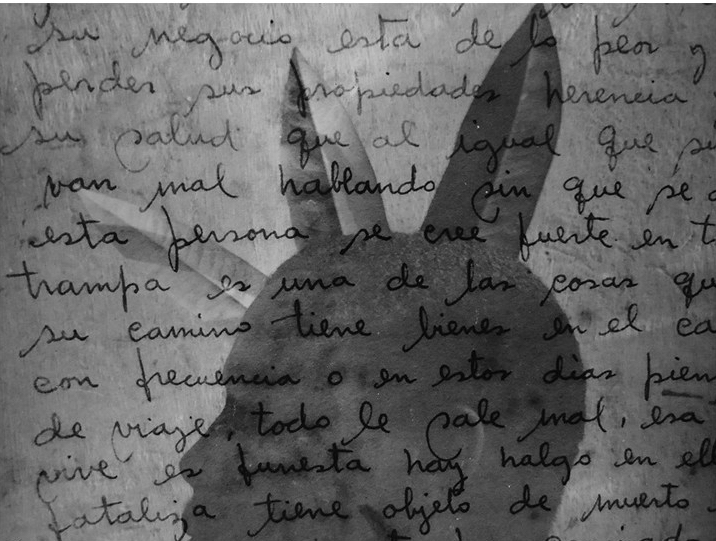 su negocio esta de lo peor y
perder sus propiedades herencia
su salud que al igual que
van mal hablando sin que se
esta persona se cree fuerte en
trampa es una de las cosas
su camino tiene bienes en el
con frecuencia o en estos dias
de viaje, todo le sale mal, esa
vive es funesta hay halgo en
fataliza tiene objeto de muerto